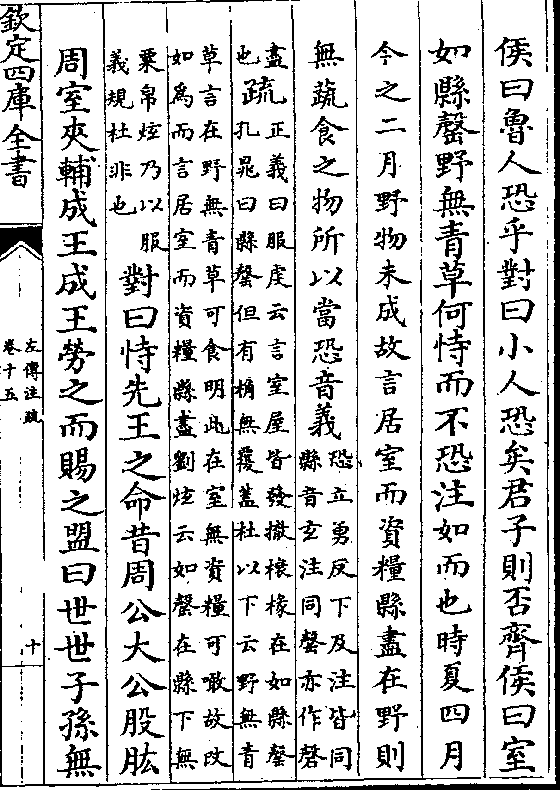 侯曰魯人恐乎對曰小人恐矣君子則否齊侯曰室
如縣罄野無青草何恃而不恐注如而也時夏四月
今之二月野物未成故言居室而資糧縣盡在野則
無蔬食之物所以當恐音義恐立勇反下及注皆同
縣音玄注同罄亦作磬
盡疏正義曰服虔云言室屋皆發撤榱椽在如縣罄
也孔晁曰縣罄但有桷無覆蓋杜以下云野無青
草言在野無青草可食明此在室無資糧可噉故改
如為而言居室而資糧縣盡劉炫云如罄在縣下無
粟帛炫乃以服
義規杜非也
對曰恃先王之命昔周公大公股肱
周室夾輔成王成王勞之而賜之盟曰世世子孫無
欽定四庫全書
左傳注疏
卷十五
十